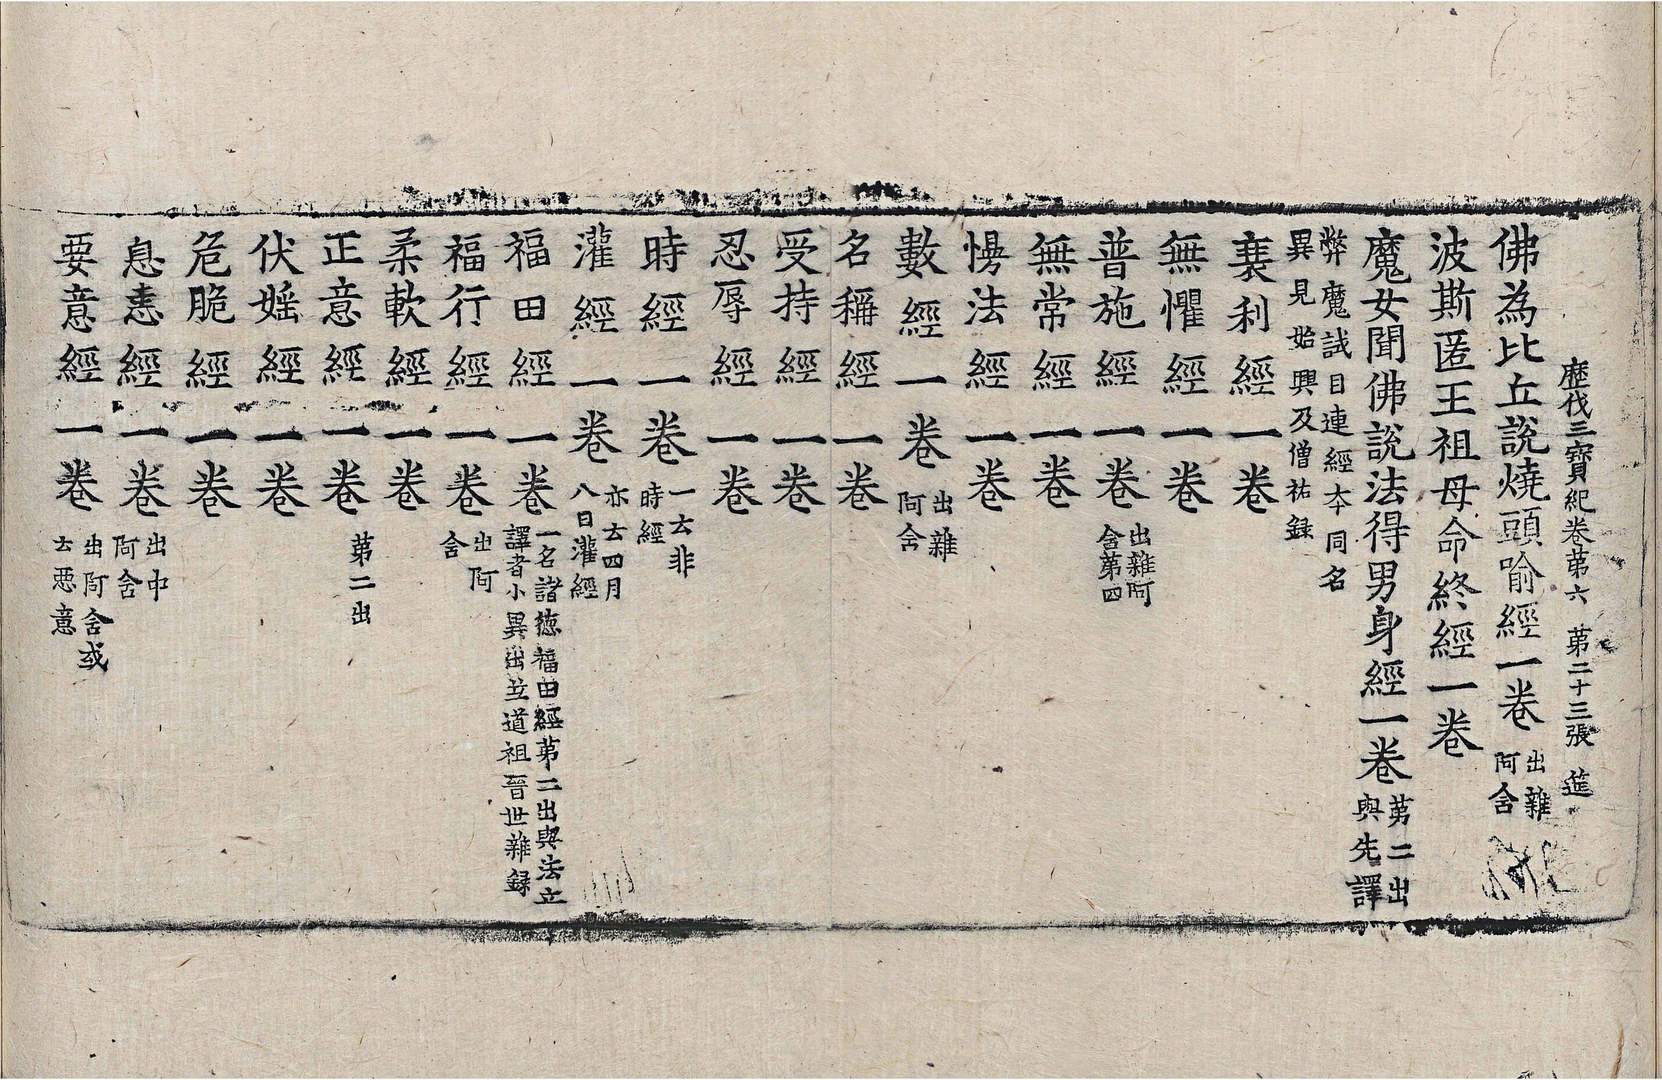 歷代三寶紀卷苐六 苐二十三張 莚
佛為比丘說燒頭喻經一卷 出雜阿含
波斯匿王祖母命終經一卷
魔女聞佛說法得男身經一卷 苐二出與先譯
弊魔試目連經夲同名異見始興及僧祐録
衰利經一卷
無懼經一卷
普施經一卷 出雜阿含苐四
無常經一卷
慢法經一卷
數經一卷 出雜阿含
名稱經一卷
受持經一卷
忍辱經一卷
時經一卷 一云非時經
灌經一卷 亦云四月八日灌經
福田經一卷 一名諸德福田經苐二出與法立譯者小異出竺道祖晉世雜録
福行經一卷 出阿含
柔軟經一卷
正意經一卷 苐二出
伏婬經一卷
危脆經一卷
息恚經一卷 出中阿含
要意經一卷 出阿含或云惡意